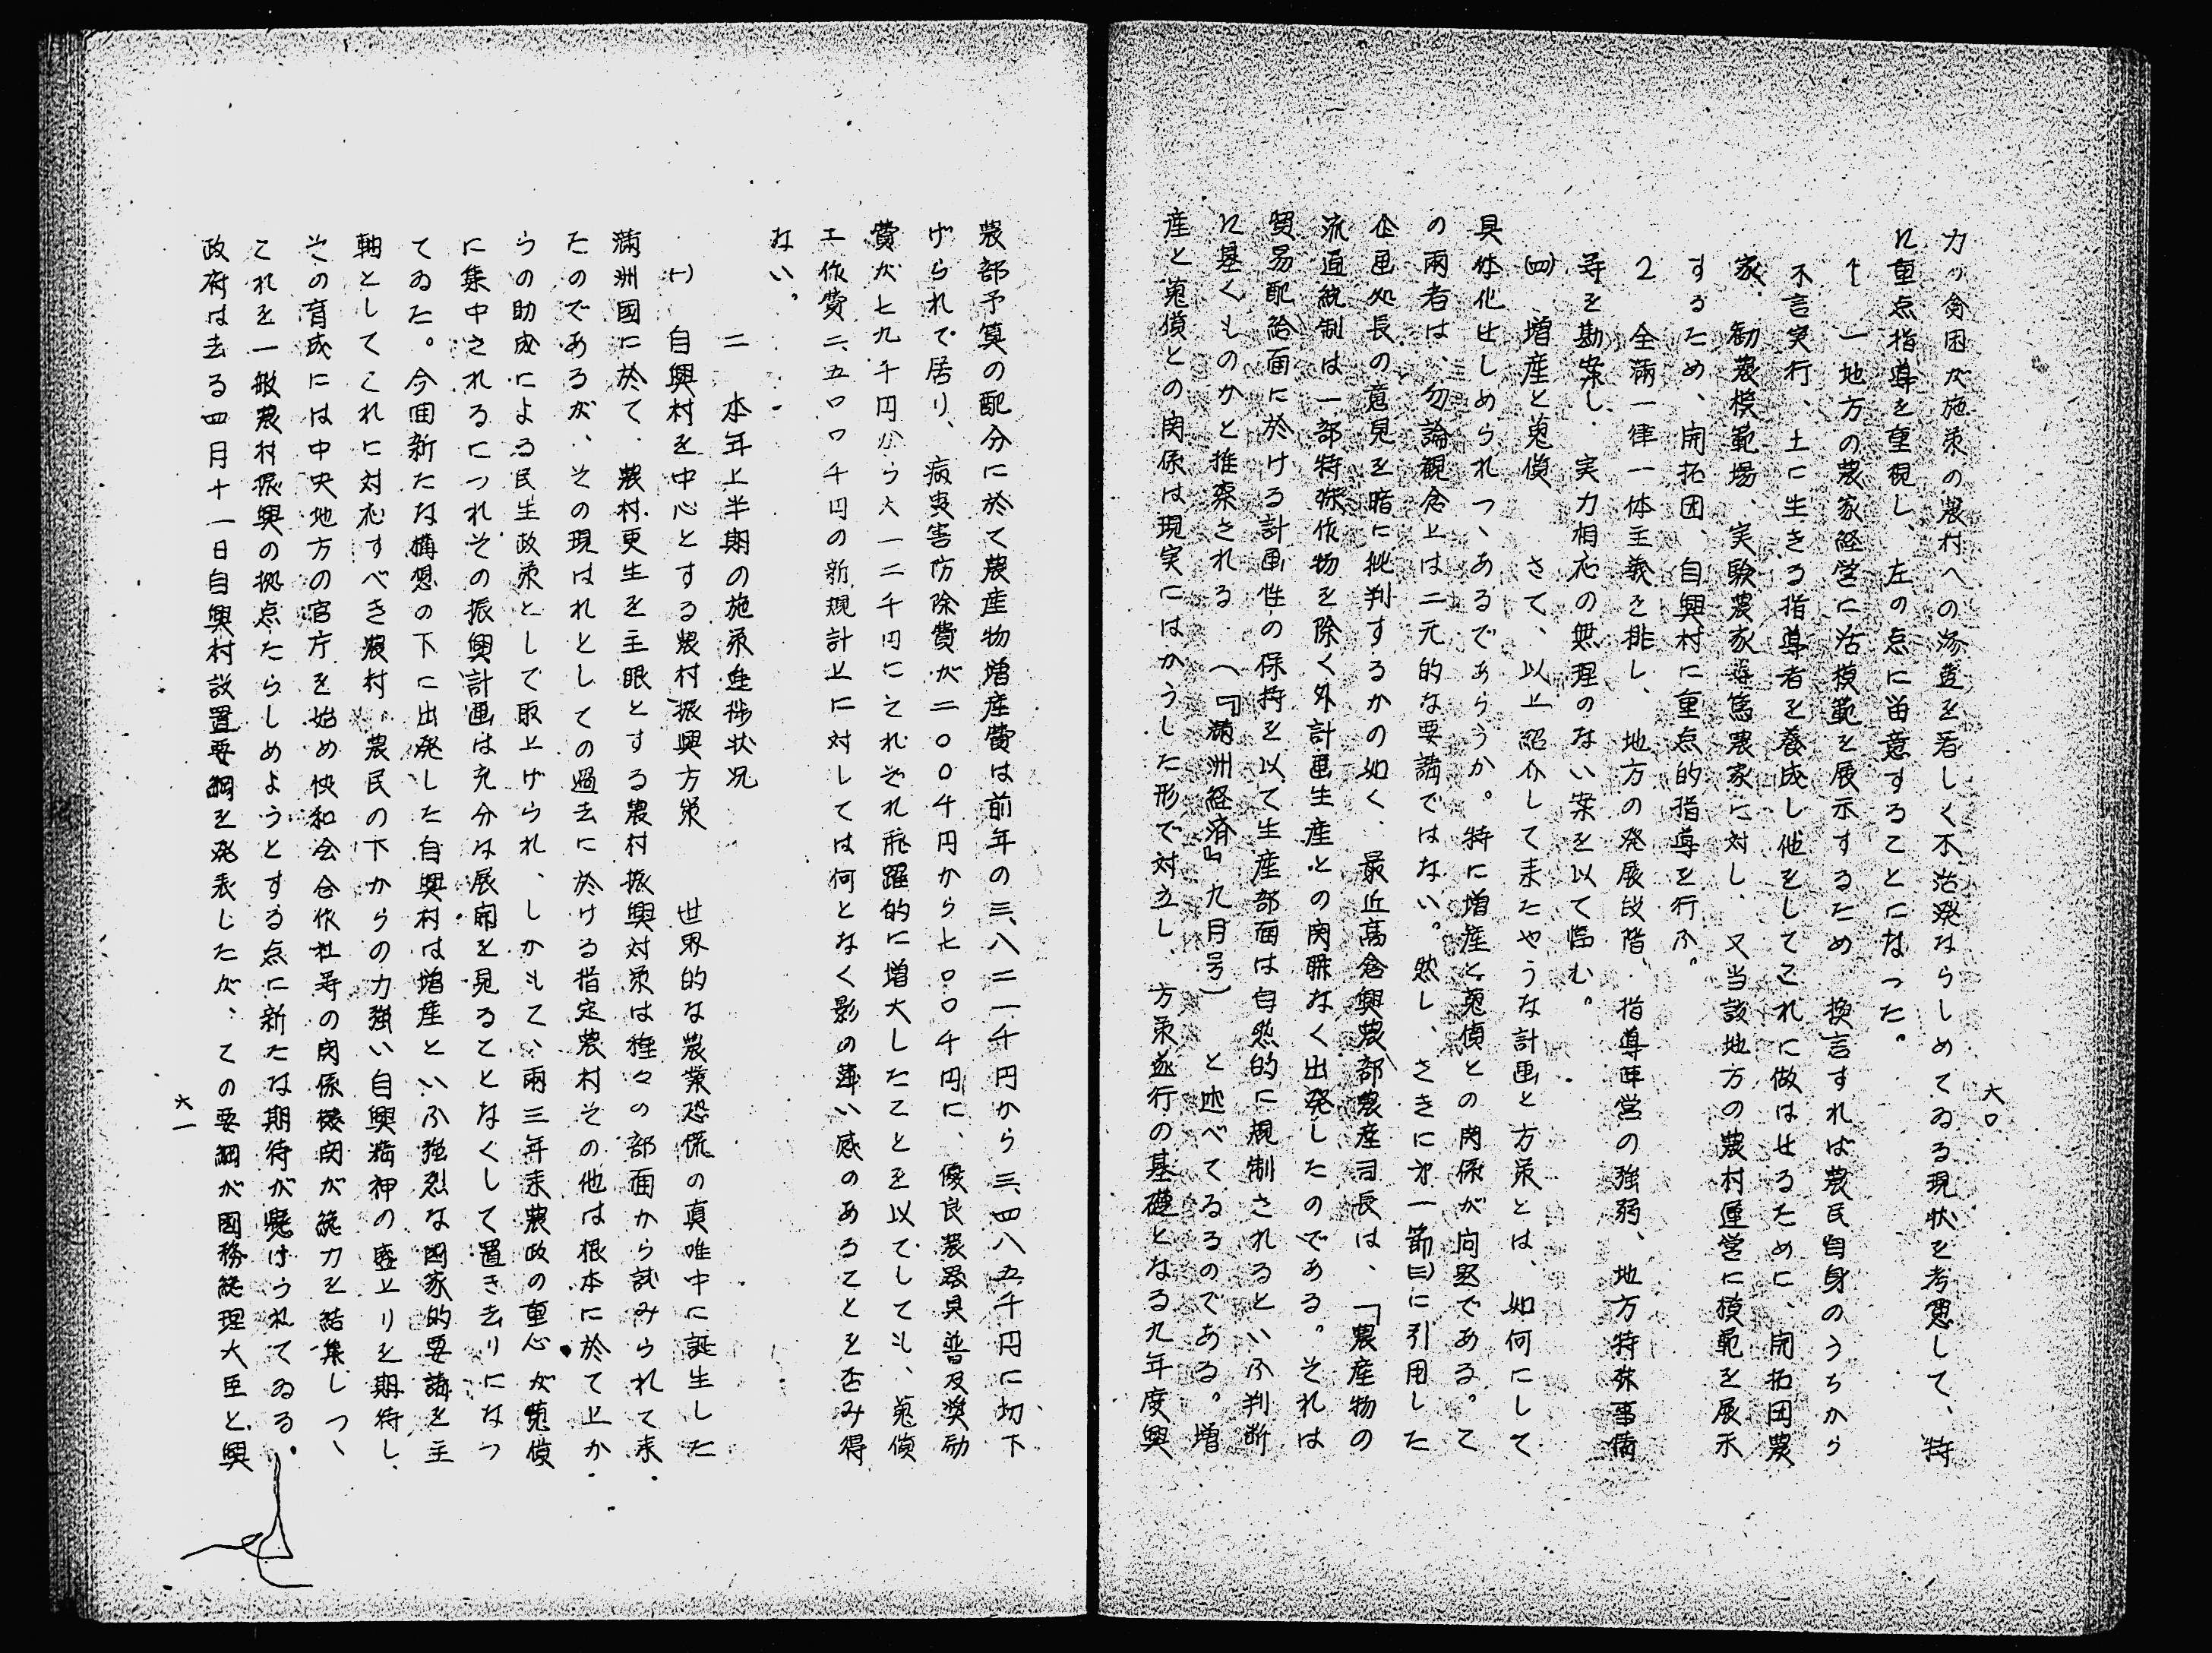 六〇
力の貧困が施策の農村への滲透を著しく不活溌ならしめてゐる現状を考慮して、特
に重点指導を重視し、左の点に留意することになった。
1 一地方の農家経営に活模範を展示するため 換言すれば農民自身のうちから
不言実行、土に生きる指導者を養成し他をしてこれに倣はせるために、開拓団農
家、勧農模範場、実験農家等篤農家に対し、又当該地方の農村運営に模範を展示
するため、開拓団、自興村に重点的指導を行ふ。
2 全満一律一体主義を排し、地方の発展段階、指導陣営の強弱、地方特殊事情
等を勘案し、実力相応の無理のない案を以て臨む。
㈣ 増産と蒐偵 さて、以上紹介して来たやうな計画と方策とは、如何にして
具体化せしめられつゝあるであらうか。特に増産と蒐偵との関係が问題である。こ
の両者は、勿論観念上は二元的な要請ではない。然し、さきに第一節㈢に引用した
企画処長の意見を暗に批判するかの如く、最近高倉興農部農産司長は、「農産物の
流通統制は一部特殊作物を除く外計画生産との関聯なく出発したのである。それは
貿易配給面に於ける計画性の保持を以て生産部面は自然的に規制されるといふ判断
に基くものかと推察される（『満洲経済』九月号）と述べてゐるのである。増
産と蒐偵との関係は現実にはかうした形で対立し、方策遂行の基礎となる九年度興
農部予算の配分に於て農産物増産費は前年の三、八二一千円から三、四八五千円に切下
げられて居り、病虫害防除費が二〇〇千円から七〇〇千円に、優良農器具普及奨励
費が七九千円から六一二千円にそれぞれ飛躍的に増大したことを以てしても、蒐偵
工作費二、五〇〇千円の新規計上に対しては何となく影の薄い感のあることを否み得
ない。
二 本年上半期の施策進捗状况
㈠ 自興村を中心とする農村振興方策 世界的な農業恐慌の真唯中に誕生した
満洲國に於て、農村更生を主眼とする農村振興対策は種々の部面から試みられて来
たのであるが、その現はれとしての過去に於ける指定農村その他は根本に於て上か
らの助成による民生政策として取上げられ、しかもて、両三年来農政の重心が蒐偵
に集中されるにつれその振興計画は充分な展開を見ることなくして置き去りになつ
てゐた。今囬新たな構想の下に出発した自興村は増産といふ強烈な國家的要請を主
軸としてこれに対応すべき農村、農民の下からの力強い自興精神の盛上りを期待し、
その育成には中央地方の官庁を始め協和会合作社等の関係機関が総力を結集しつゝ
これを一般農村振興の拠点たらしめようとする点に新たな期待が懸けられてゐる。
政府は去る四月十一日自興村設置要綱を発表したが、この要綱が國務総理大臣と興
六一